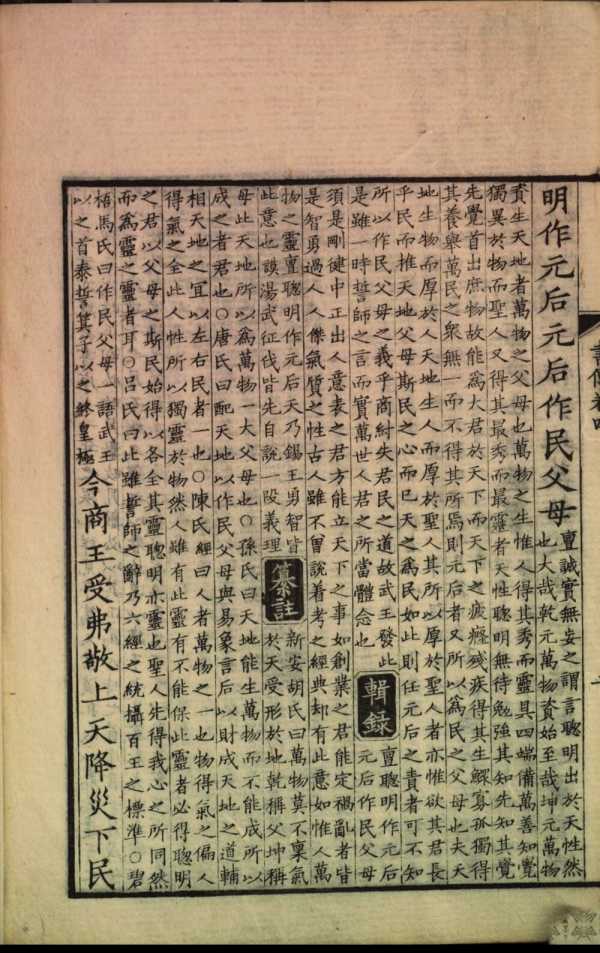 明作元后元后作民父母
亶誠實無妄之謂言聰明出於天性然
也大哉乾元萬物資始至哉坤元萬物
資生天地者萬物之父母也萬物之生惟人得其秀而靈具四端備萬善知覺
獨異於物而聖人又得其最秀而最靈者天性聰明無待勉強其知先知其覺
先覺首出庶物故能為大君於天下而天下之疲癃殘疾得其生鰥寡孤獨得
其養舉萬民之衆無一而不得其所焉則元后者又所以為民之父母也夫天
地生物而厚於人天地生人而厚於聖人其所以厚於聖人者亦惟欲其君長
乎民而推天地父母斯民之心而已天之為民如此則任元后之責者可不知
所以作民父母之義乎商紂失君民之道故武王發此
是雖一時誓師之言而實萬世人君之所當體念也
輯録
亶聰明作元后
元后作民父母
須是剛健中正出人意表之君方能立天下之事如創業之君能定禍亂者皆
是智勇過人人傑氣質之性古人雖不曽說着考之經典却有此意如惟人萬
物之靈亶聰明作元后天乃錫王勇智皆
此意也謨湯武征伐皆先自說一段義理
纂註
新安胡氏曰萬物莫不稟氣
於天受形於地乾稱父坤稱
母此天地所以為萬物一大父母也○孫氏曰天地能生萬物而不能成所以
成之者君也○唐氏曰配天地以作民父母與易象言后以財成天地之道輔
相天地之宜以左右民者一也○陳氏經曰人者萬物之一也物得氣之偏人
得氣之全此人性所以獨靈於物然人雖有此靈有不能保此靈者必得聰明
之君以父母之斯民始得以各全其靈聰明亦靈也聖人先得我心之所同然
而為靈之靈者耳○呂氏曰此雖誓師之辭乃六經之統攝百王之標準○碧
梧馬氏曰作民父母一語武王
以之首泰誓箕子以之終皇極
今商王受弗敬上天降災下民